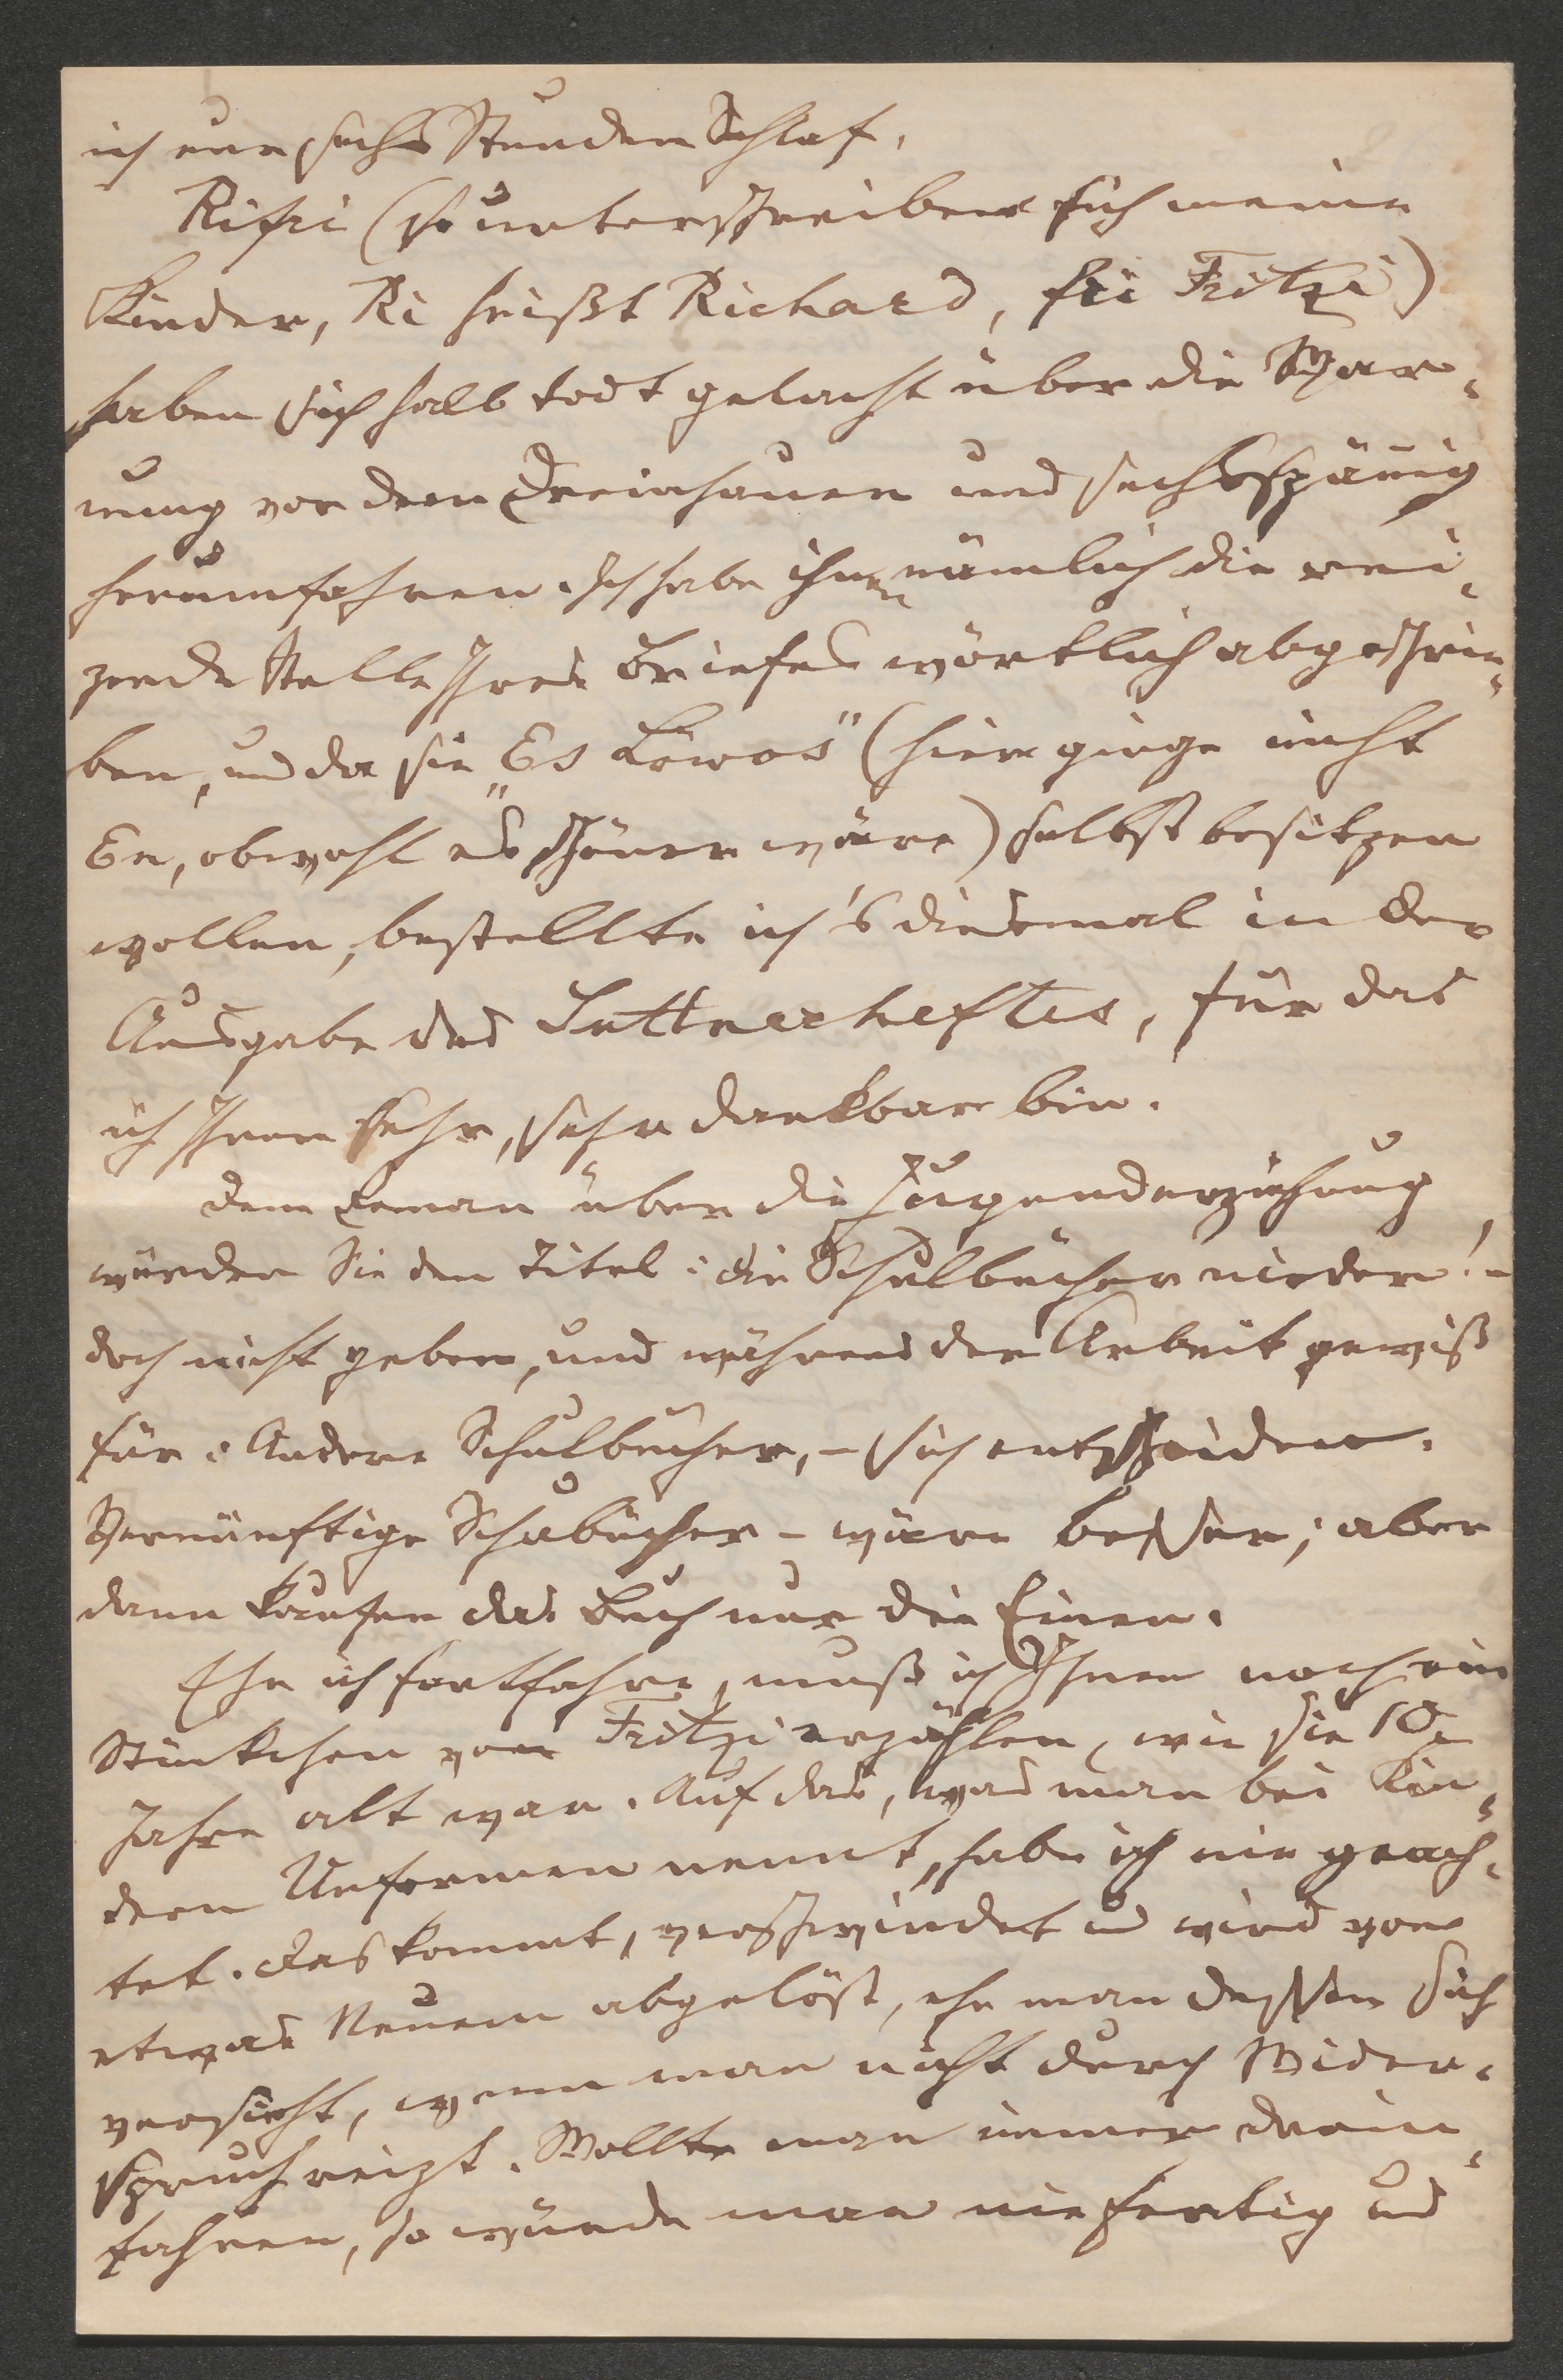 ich nur sechs Stunden Schlaf.
Rifri (so unterschreiben sich meine
Kinder, Ri heißt Richard, fri Fritzi)
haben sich halb todt gelacht über die War-
nung vor dem Dreinhauen und sechsspänig
herumfahren. Ich habe ihnen nämlich die rei-
zende Stelle Ihres Briefes wörtlich abgeschrie-
ben, und da sie „Es Löwos" (hier ginge nicht
En, obwohl es schöner wäre) selbst besitzen
wollen, bestellte ich's diesmal in der
Ausgabe des Suttnerheftes, für das
ich Ihnen sehr, sehr dankbar bin.
Dem Roman über die Jugenderziehung
würden Sie den Titel: die Schulbücher nieder! -
doch nicht geben, und während der Arbeit gewiß
für: Andere Schulbücher, - sich entscheiden.
Vernünftige Schulbücher - wäre besser; aber
dann kaufen das Buch nur die Einen.
Ehe ich fortfahre, muß ich Ihnen noch ein
Stückchen von Fritzi erzählen, wie sie 10
Jahre alt war. Auf das, was man bei Kin-
dern Unformen nennt, habe ich nie geach-
tet. Das kommt, verschwindet u wird von
etwas Neuem abgelöst, ehe man dessen sich
versieht, wenn man nicht durch Wider-
spruch reizt. Wollte man immer drein-
fahren, so würde man nie fertig und